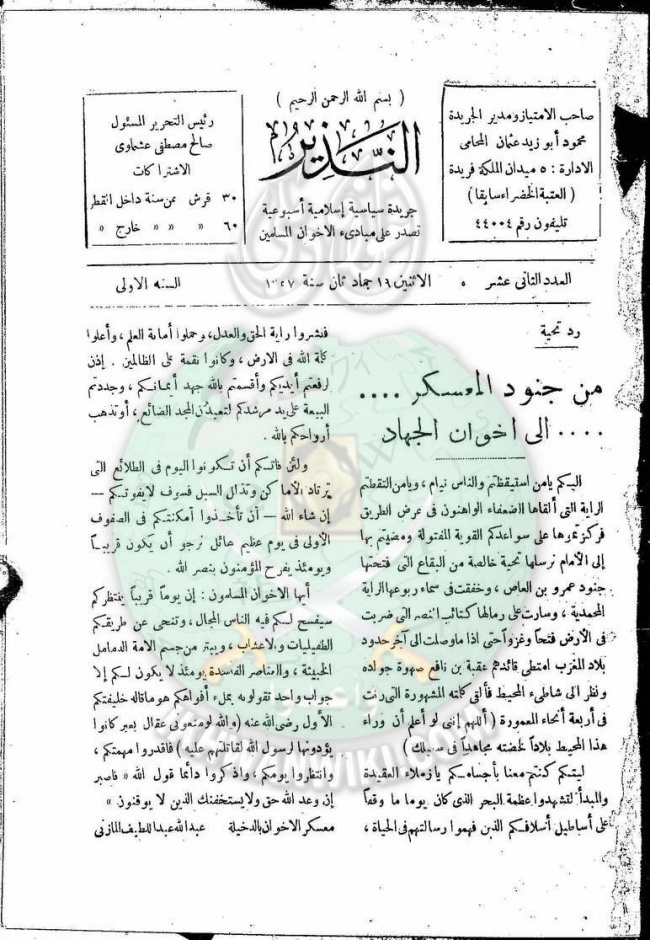 ( بسم الله الرحمن الرحيم )
النذير
جريدة سياسية إسلامية أسبوعية
تصدر على مبادىء الاخوان المسلمين
صاحب الامتياز ومدير الجريدة
محمود أبو زيد عثمان المحامى
الادارة : ٥ ميدان الملكة فريدة
( العتبة الخضراء سابقا )
تليفون رقم ٤٤٠٠٤
رئيس التحرير المسئول
صالح مصطفى عشماوى
الاشتراكات
٣٠ قرش عن سنة داخل القطر
٦٠ » » » خارج »
العدد الثانى عشر
الاثنين ١٦ جماد ثان سنة
السنه الاولى
رد تحية
من جنود المعسكر ....
.... الى اخوان الجهاد
اليكم يامن استيقظتم والناس نيام ، ويامن التقطتم
الراية التى ألقاها الضعفاء الواهنون فى عرض الطريق
فركزتموها على سواعدكم القوية المفتولة ومضيتم بها
إلى الأمام نرسلها تحية خالصة من البقاع التى فتحتها
جنود عمرو بن العاص ، وخفقت فى سماء ربوعها الراية
المحمدية ، وسارت على رمالها كتائب النصر التى ضربت
فى الأرض فتحاً وغزواً حتى اذا ما وصلت الى آخر حدود
بلاد المغرب امتطى قائدهم عقبة بن نافع صهوة جواده
ونظر الى شاطىء المحيط فألقى كلمته المشهورة التى رنت
فى أربعة أنحاء المعمورة ( أللهم إنى لو أعلم أن وراء
هذا المحيط بلاداً لخضته مجاهداً فى سبيلك )
ليتكم كنتم معنا بأجسامكم يا زملاء العقيدة
والمبدأ لتشهدوا عظمة البحر الذى كان يوما ما وقفاً
على أساطيل أسلافكم الذين فهموا رسالتهم فى الحياة ،
فنشروا راية الحق والعدل، وحملوا أمانة العلم ، وأعلوا
كلمة الله فى الارض ، وكانوا نقمة على الظالمين . إذن
لرفعتم أيديكم وأقسمتم بالله جهد أيمانكم ، وجددتم
البيعة على يد مرشدكم لتعيدن المجد الضائع ، أو تذهب
أرواحكم بالله .
ولئن فاتكم أن تكونوا اليوم فى الطلائع التى
ترتاد الأماكن وتذلل السبل فسوف لا يفوتكم —
إن شاء الله — أن تأخذوا أمكنتكم فى الصفوف
الأولى فى يوم عظيم هائل نرجو أن يكون قريباً
ويومئذ يفرح المؤمنون بنصر الله .
أيها الاخوان المسلمون : إن يوماً قريباً ينتظركم
سيفسح لكم فيه الناس المجال ، وتنحى عن طريقكم
الطفيليات والأعشاب ، ويبتر من جسم الامة الدمامل
الخبيثة ، والعناصر الفاسدة يومئذ لا يكون لكم إلا
جواب واحد تقولونه بملء أفواهكم هو ما قاله خليفتكم
الأول رضى الله عنه ( والله لو منعونى عقال بعير كانوا
يؤدونها لرسول الله لقاتلتهم عليه ) فاقدروا مهمتكم ،
وانتظروا يومكم ، واذكروا دأئما قول الله « فاصبر
إن وعد الله حق ولا يستخفنك الذين لا يوقنون »
معسكر الاخوان بالدخيلة عبد الله عبد اللطيف المازنى
IKHWANWIKI.COM